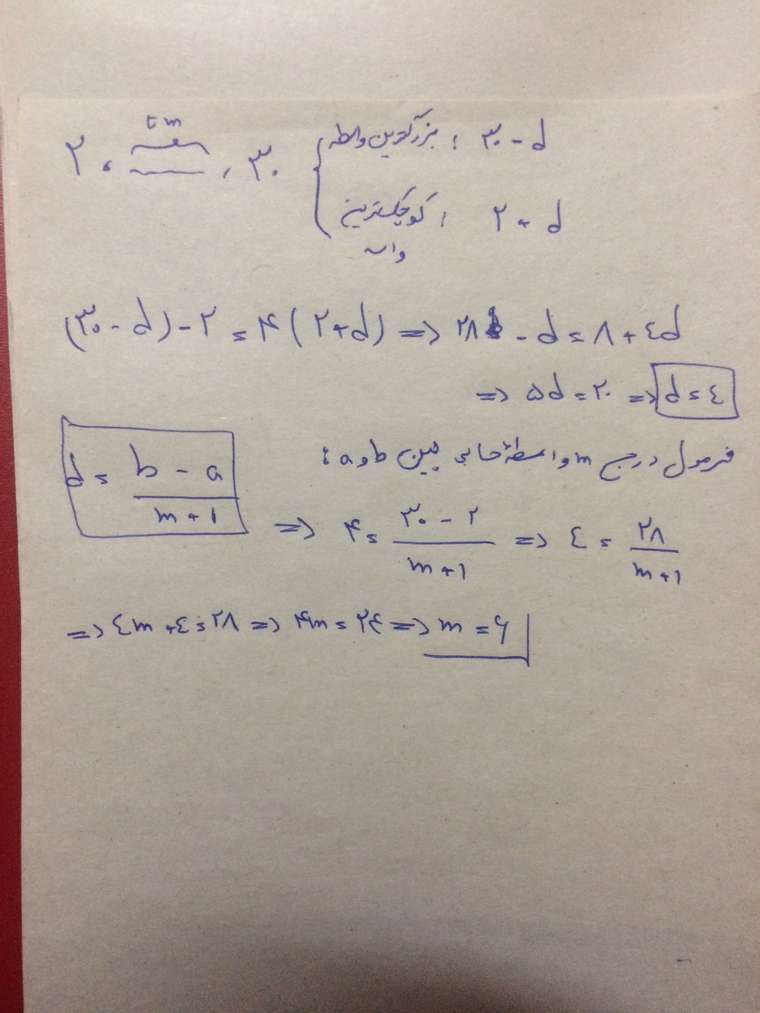 ۲ , m , ۳۰
بزرگترین واسطه : ۳۰ - d
کوچکترین واسطه : ۲ + d
(۳۰ - d) - ۲ = ۴ (۲ + d) => ۲۸ - d = ۸ + ٤d
=> ۵d = ۲۰ => d = ٤
فرمول درج m واسطهٔ حسابی بین a و b :
d = b - a / m + 1
=> ۴ = ۳۰ - ۲ / m + 1 => ٤ = ۲۸ / m + 1
=> ٤m + ٤ = ۲۸ => ۴m = ۲۴ => m = ۶